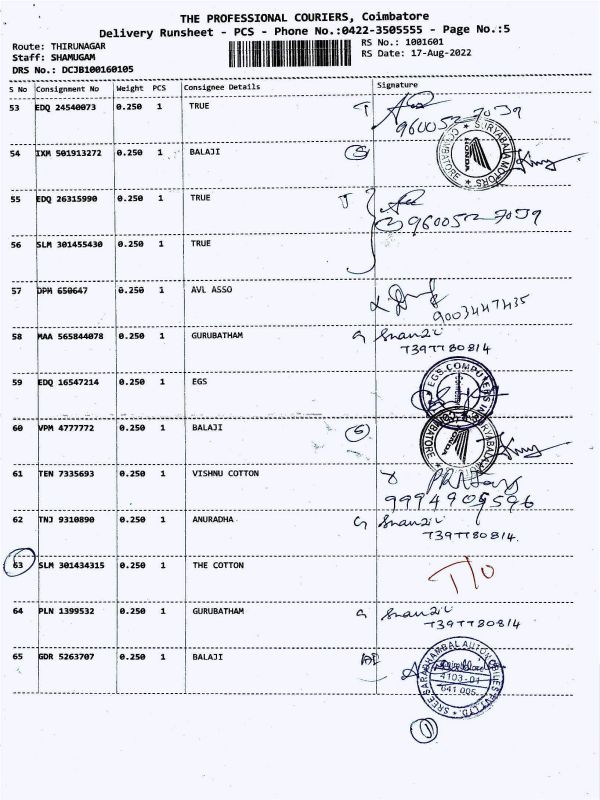 THE PROFESSIONAL COURIERS, Coimbatore
Delivery Runsheet - PCS - Phone No.:0422-3505555 - Page No.:5
Route: THIRUNAGAR
RS No.: 1001601
Staff: SHAMUGAM
RS Date: 17-Aug-2022
DRS No.: DCJB100160105
S No Consignment No Weight PCS Consignee Details Signature
53 EDQ 24540073 0.250 1 TRUE
54 IXM 501913272 0.250 1 BALAJI
SURYABALA MOTORS COIMBATORE HONDA
55 EDQ 26315990 0.250 1 TRUE
56 SLM 301455430 0.250 1 TRUE
57 DPM 650647 0.250 1 AVL ASSO
9003447435
58 MAA 565844078 0.250 1 GURUBATHAM
7397780814
59 EDQ 16547214 0.250 1 EGS
EGS COMPUTERS
60 VPM 4777772 0.250 1 BALAJI
61 TEN 7335693 0.250 1 VISHNU COTTON
9994909596
62 TNJ 9310890 0.250 1 ANURADHA
7397780814.
63 SLM 301434315 0.250 1 THE COTTON
T/O
64 PLN 1399532 0.250 1 GURUBATHAM
7397780814
65 GDR 5263707 0.250 1 BALAJI
SREE SARADHAMBAL AUTOMOBILES PVT. LTD.
4103-01
641 005.
1